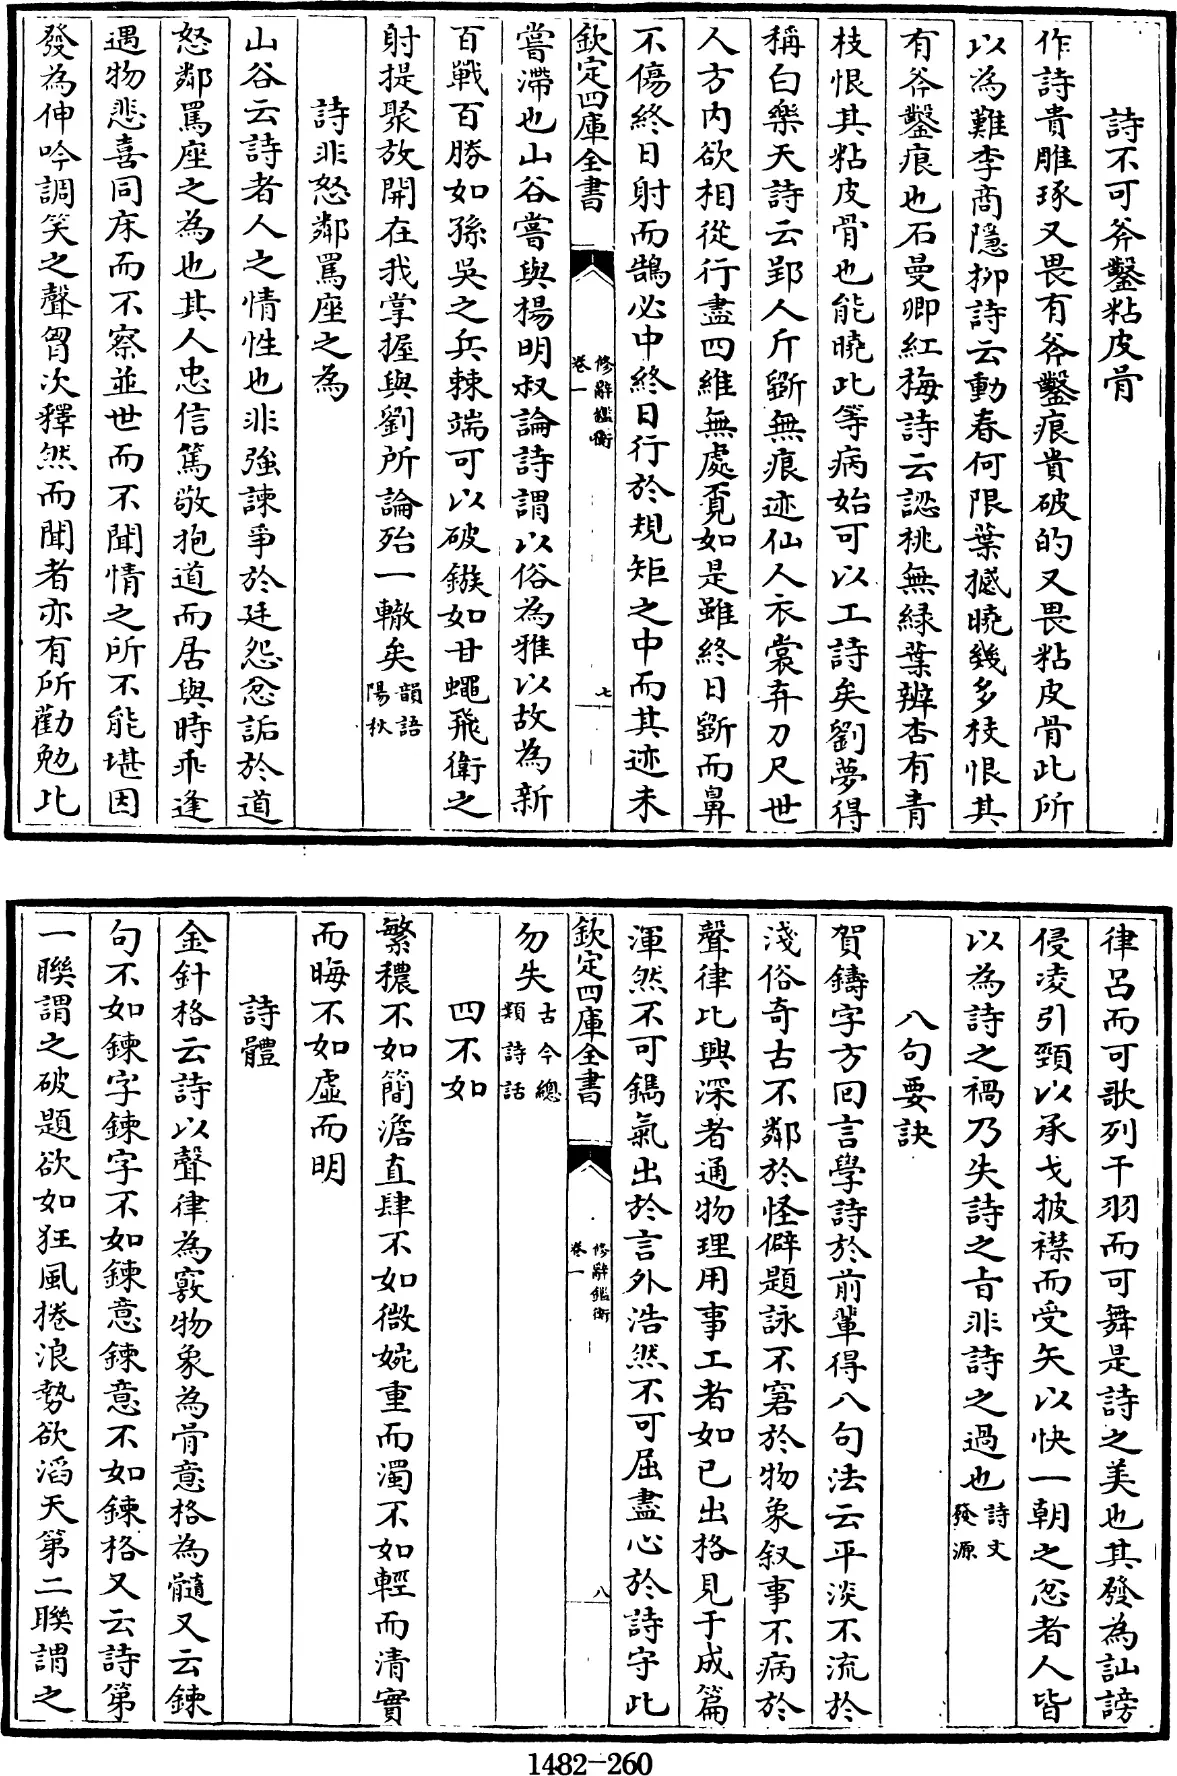 詩不可斧鑿粘皮骨
作詩貴雕琢又畏有斧鑿痕貴破的又畏粘皮骨此所
以為難李商隱栁詩云動春何限葉撼曉幾多枝恨其
有斧鑿痕也石曼卿紅梅詩云認桃無緑葉辨杏有青
枝恨其粘皮骨也能曉此等病始可以工詩矣劉夢得
稱白樂天詩云郢人斤斵無痕迹仙人衣裳弃刀尺世
人方内欲相從行盡四維無處覓如是雖終日斵而鼻
不傷終日射而鵠必中終日行於規矩之中而其迹未
欽定四庫全書
修辭鑑衡
卷一
七
嘗滯也山谷嘗與楊明叔論詩謂以俗為雅以故為新
百戰百勝如孫吳之兵棘端可以破鏃如甘蠅飛衛之
射捉聚放開在我掌握與劉所論殆一轍矣韻語
陽秋
詩非怒鄰罵座之為
山谷云詩者人之情性也非強諫爭於廷怨忿詬於道
怒鄰罵座之為也其人忠信篤敬抱道而居與時乖逢
遇物悲喜同床而不察並世而不聞情之所不能堪因
發為伸吟調笑之聲胷次釋然而聞者亦有所勸勉比
律呂而可歌列干羽而可舞是詩之美也其發為訕謗
侵凌引頸以承戈披襟而受矢以快一朝之忿者人皆
以為詩之禍乃失詩之㫖非詩之過也詩文
發源
八句要訣
賀鑄字方回言學詩於前輩得八句法云平淡不流於
淺俗奇古不鄰於怪僻題詠不窘於物象叙事不病於
聲律比興深者通物理用事工者如已出格見于成篇
渾然不可鐫氣出於言外浩然不可屈盡心於詩守此
欽定四庫全書
修辭鑑衡
卷一
八
勿失古今總
類詩話
四不如
繁穠不如簡澹直肆不如微婉重而濁不如輕而清實
而晦不如虛而明
詩體
金針格云詩以聲律為竅物象為骨意格為髓又云鍊
句不如鍊字鍊字不如鍊意鍊意不如鍊格又云詩第
一聯謂之破題欲如狂風捲浪勢欲滔天第二聯謂之
1482-260